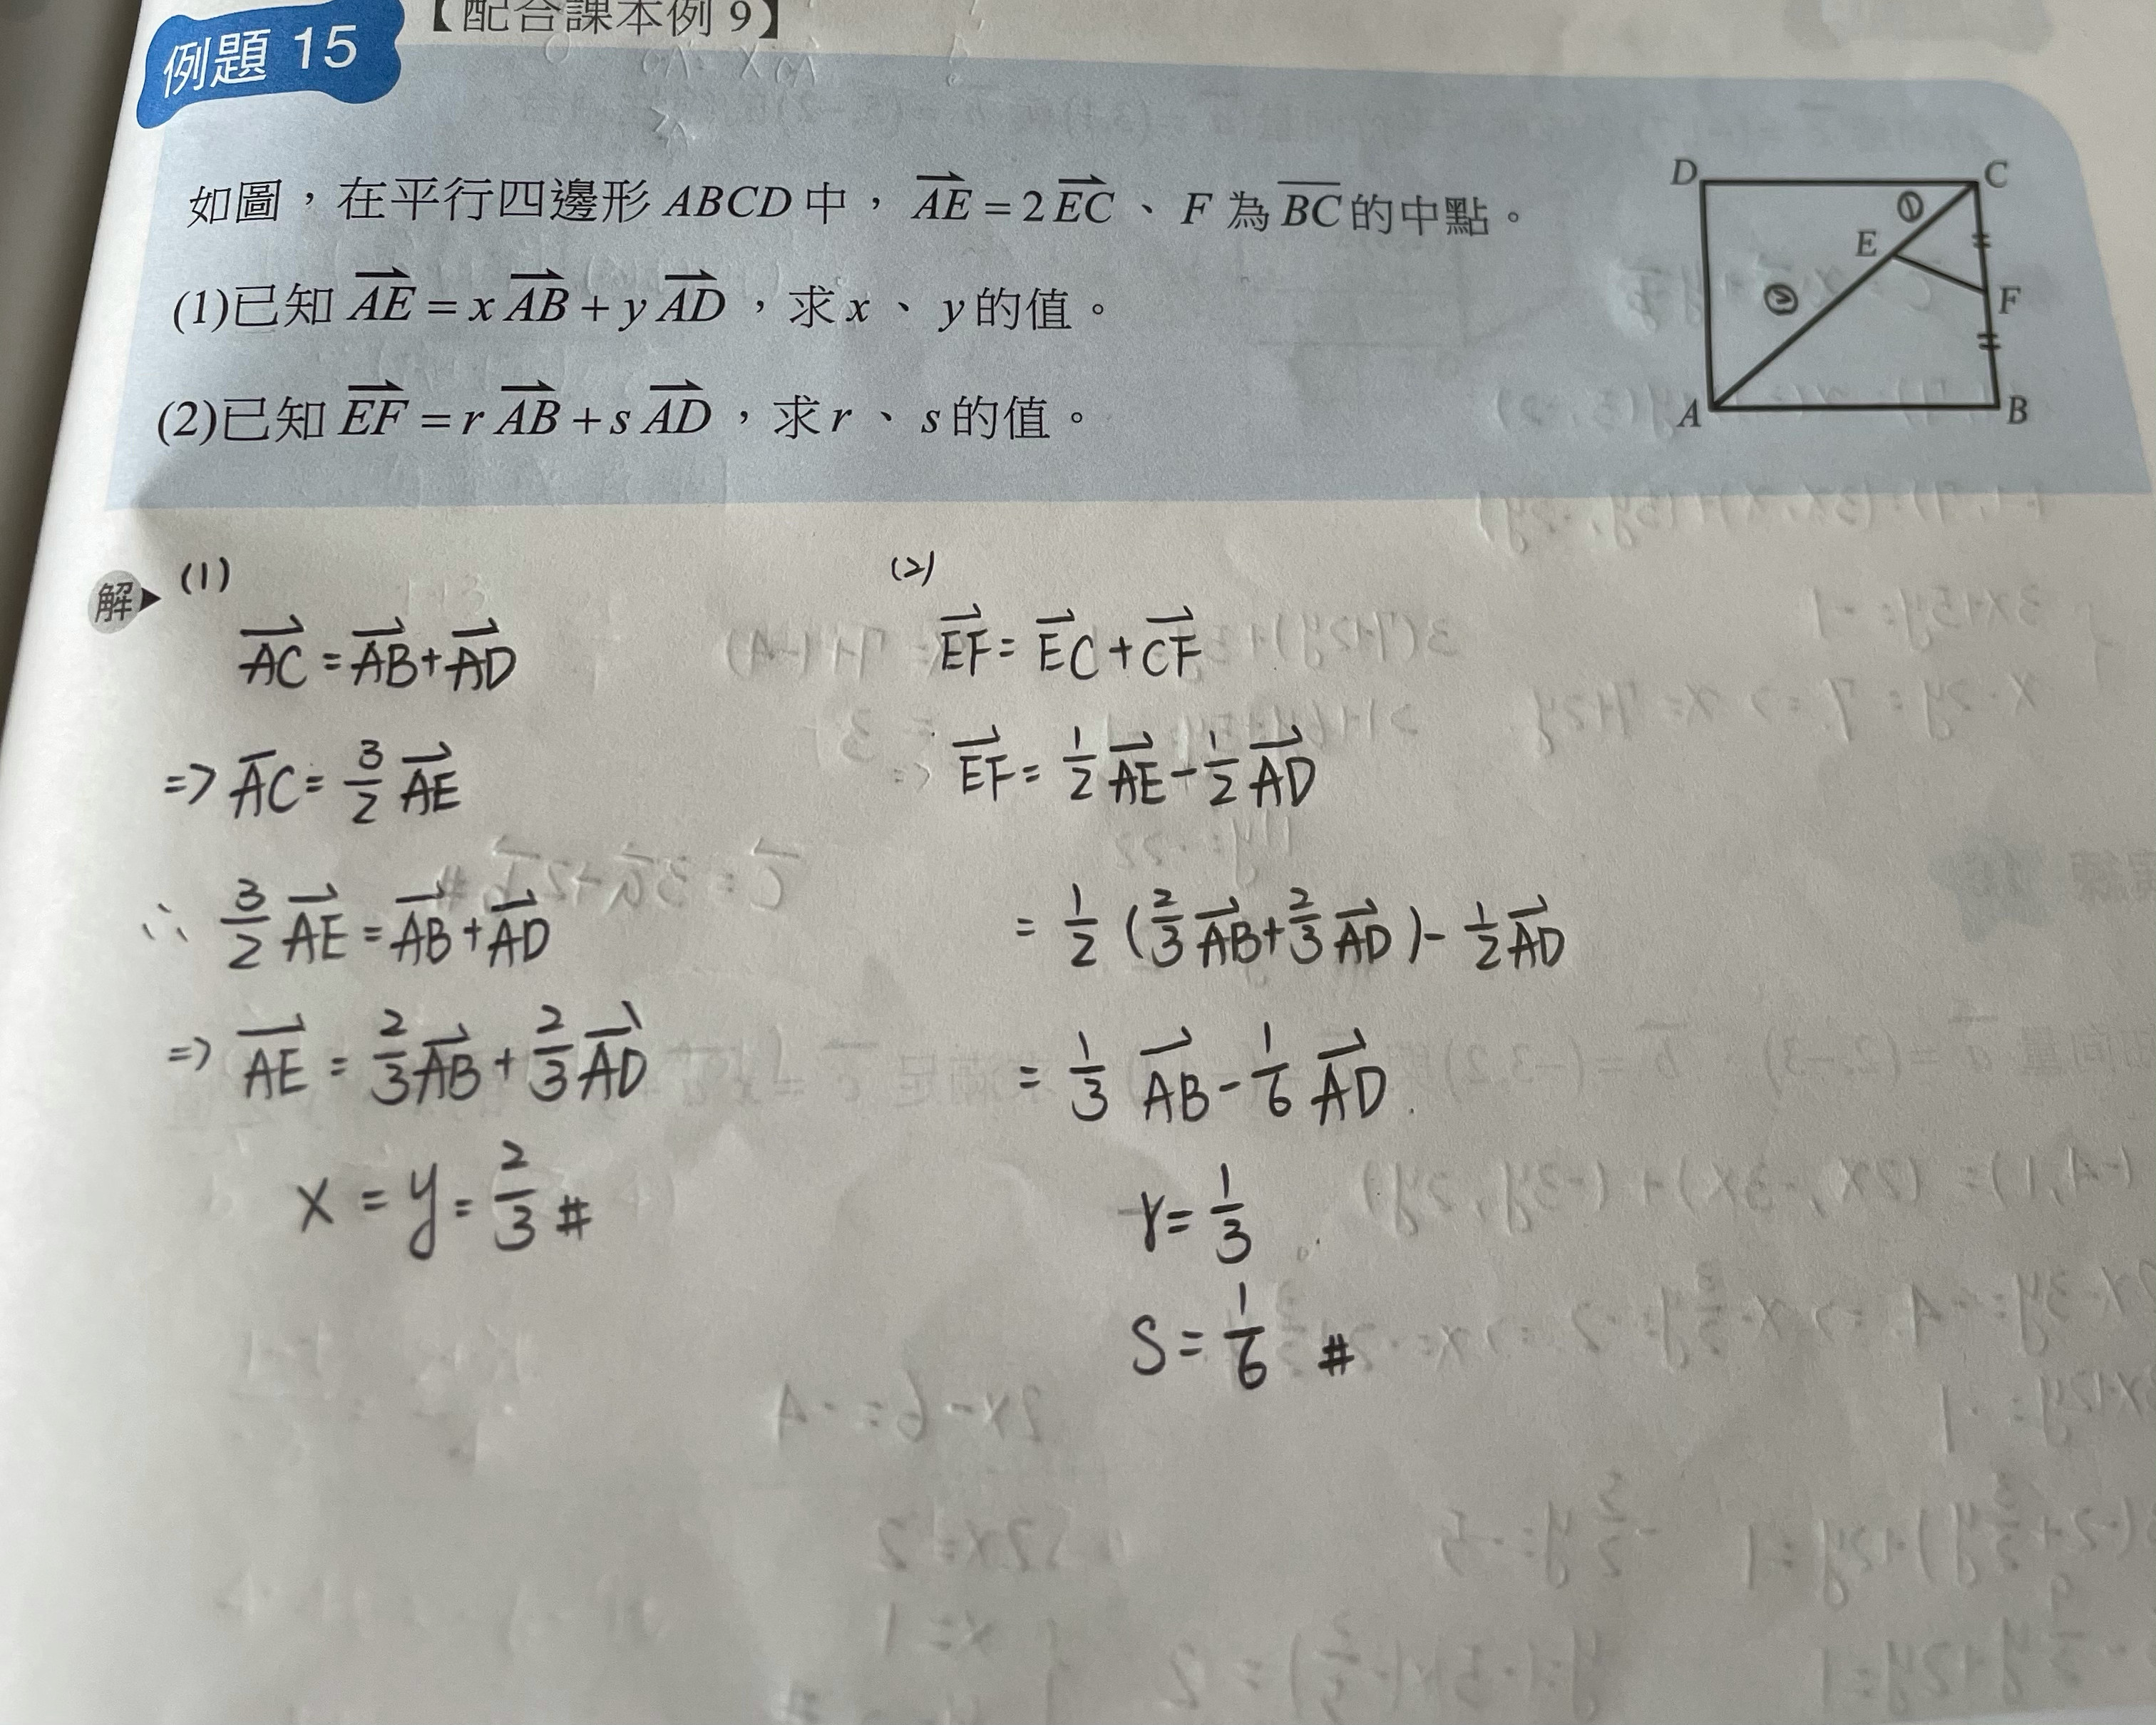 【配合課本例 9】
例題 15
如圖，在平行四邊形 ABCD 中， \overrightarrow{AE} = 2\overrightarrow{EC} 、 F 為 \overline{BC} 的中點。
(1)已知 \overrightarrow{AE} = x\overrightarrow{AB} + y\overrightarrow{AD} ，求 x 、 y 的值。
(2)已知 \overrightarrow{EF} = r\overrightarrow{AB} + s\overrightarrow{AD} ，求 r 、 s 的值。
D C
①
E
② F
A B
解▶ (1)
\overrightarrow{AC} = \overrightarrow{AB} + \overrightarrow{AD}
=> \overline{AC} = \frac{3}{2} \overrightarrow{AE}
∴ \frac{3}{2} \overrightarrow{AE} = \overrightarrow{AB} + \overrightarrow{AD}
=> \overrightarrow{AE} = \frac{2}{3} \overrightarrow{AB} + \frac{2}{3} \overrightarrow{AD}
x = y = \frac{2}{3} #
(2)
\overrightarrow{EF} = \overrightarrow{EC} + \overrightarrow{CF}
\overrightarrow{EF} = \frac{1}{2} \overrightarrow{AE} - \frac{1}{2} \overrightarrow{AD}
= \frac{1}{2} (\frac{2}{3} \overrightarrow{AB} + \frac{2}{3} \overrightarrow{AD}) - \frac{1}{2} \overrightarrow{AD}
= \frac{1}{3} \overrightarrow{AB} - \frac{1}{6} \overrightarrow{AD}.
r = \frac{1}{3}
s = \frac{1}{6} #